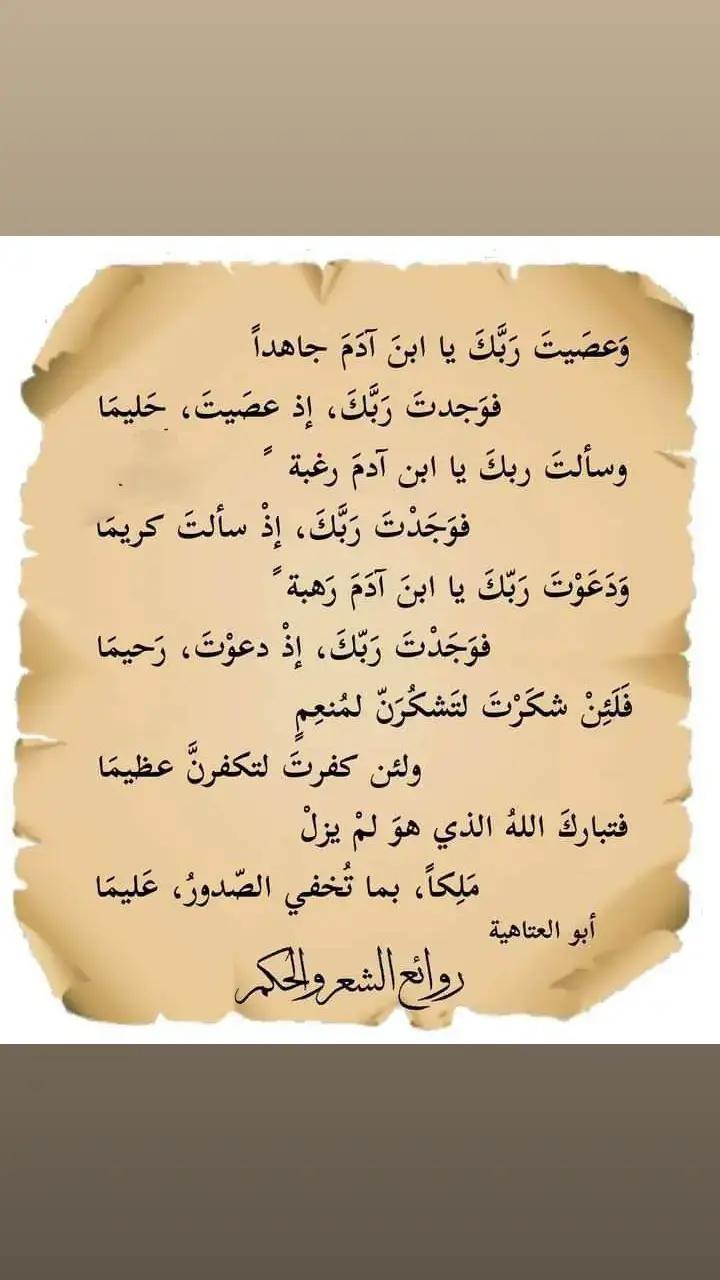 وَعصَيتَ رَبَّكَ يا ابنَ آدَمَ جاهداً
فوَجدتَ رَبَّكَ، إذ عصَيتَ، حَليمَا
وسألتَ ربكَ يا ابن آدمَ رغبة ً
فوَجَدْتَ رَبَّكَ، إذْ سألتَ كريمَا
وَدَعَوْتَ رَبّكَ يا ابنَ آدَمَ رَهبة ً
فوَجَدْتَ رَبّكَ، إذْ دعوْتَ، رَحيمَا
فَلَئِنْ شكَرْتَ لتَشكُرَنّ لمُنعِمٍ
ولئن كفرتَ لتكفرنَّ عظيمَا
فتباركَ اللهُ الذي هوَ لمْ يزلْ
مَلِكاً، بما تُخفي الصّدورُ، عَليمَا
أبو العتاهية
روائع الشعر والحكم